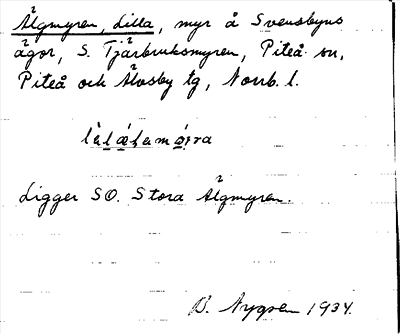 Älgmyren, Lilla, myr å Svensbyns
ägor, S. Tjärbruksmyren, Piteå sn,
Piteå och Älvsby tg, Norrb. l.
Ligger SO. Stora Älgmyren.
B. Nygren 1934.